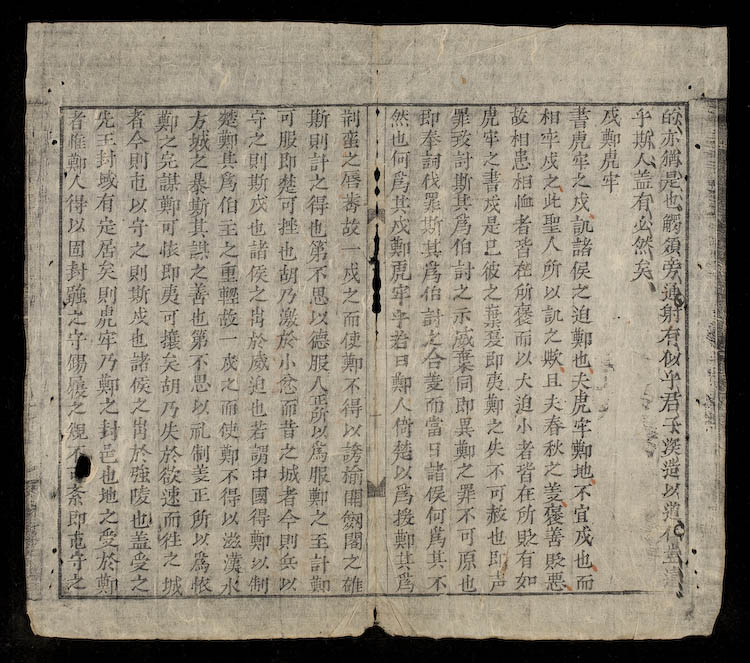 的亦猶是也觸須旁通射有似乎君子深造以道
乎斯人盖有必然矣
戍鄭虎牢
書虎牢之戍訊諸侯之迫鄭也夫虎牢鄭地不宜戍也而
相牢戍之此聖人所以訊之歟且夫春秋之義褒善貶惡
故相患相恤者皆在所褒而以大迫小者皆在所貶有如
虎牢之書戍是已彼之棄夏即夷鄭之失不可赦也即声
罪致討斯其爲伯討之示威棄同即異鄭之罪不可原也
即奉詞伐罪斯其爲伯討之合義而當日諸侯何爲其不
然也何爲其戍鄭虎牢乎若曰鄭人倚楚以爲援鄭其爲
制蠻之唇齒故一戍之而使鄭不得以誇揄關劔閣之雄
斯則計之得也第不思以德服人正所以爲服鄭之至計鄭
可服即楚可挫也胡乃激於小忿而昔之城者今則兵以
守之則斯戍也諸侯之冑於威迫也若謂中國得鄭以制
楚鄭其爲伯主之重輕故一戍之而使鄭不得以滋漢水
方城之暴斯其謀之善也第不思以礼制義正所以爲懷
鄭之完謀鄭可懷即夷可攘矣胡乃失於欲速而往之城
者今則屯以守之則斯戍也諸侯之冑於強陵也盖受之
先王封域有定居矣則虎牢乃鄭之封邑也地之受於鄭
者惟鄭人得以固封疆之守錫履之規不可紊即屯守之